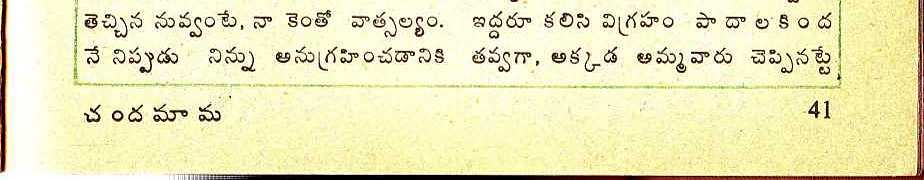 తెచ్చిన నువ్వంటే, నా కెంతో వాత్సల్యం.
నే నిప్పుడు నిన్ను అనుగ్రహించడానికి
ఇద్దరూ కలిసి విగ్రహం పాదాలకింద
తవ్వగా, అక్కడ అమ్మవారు చెప్పినట్టే
చందమామ
41